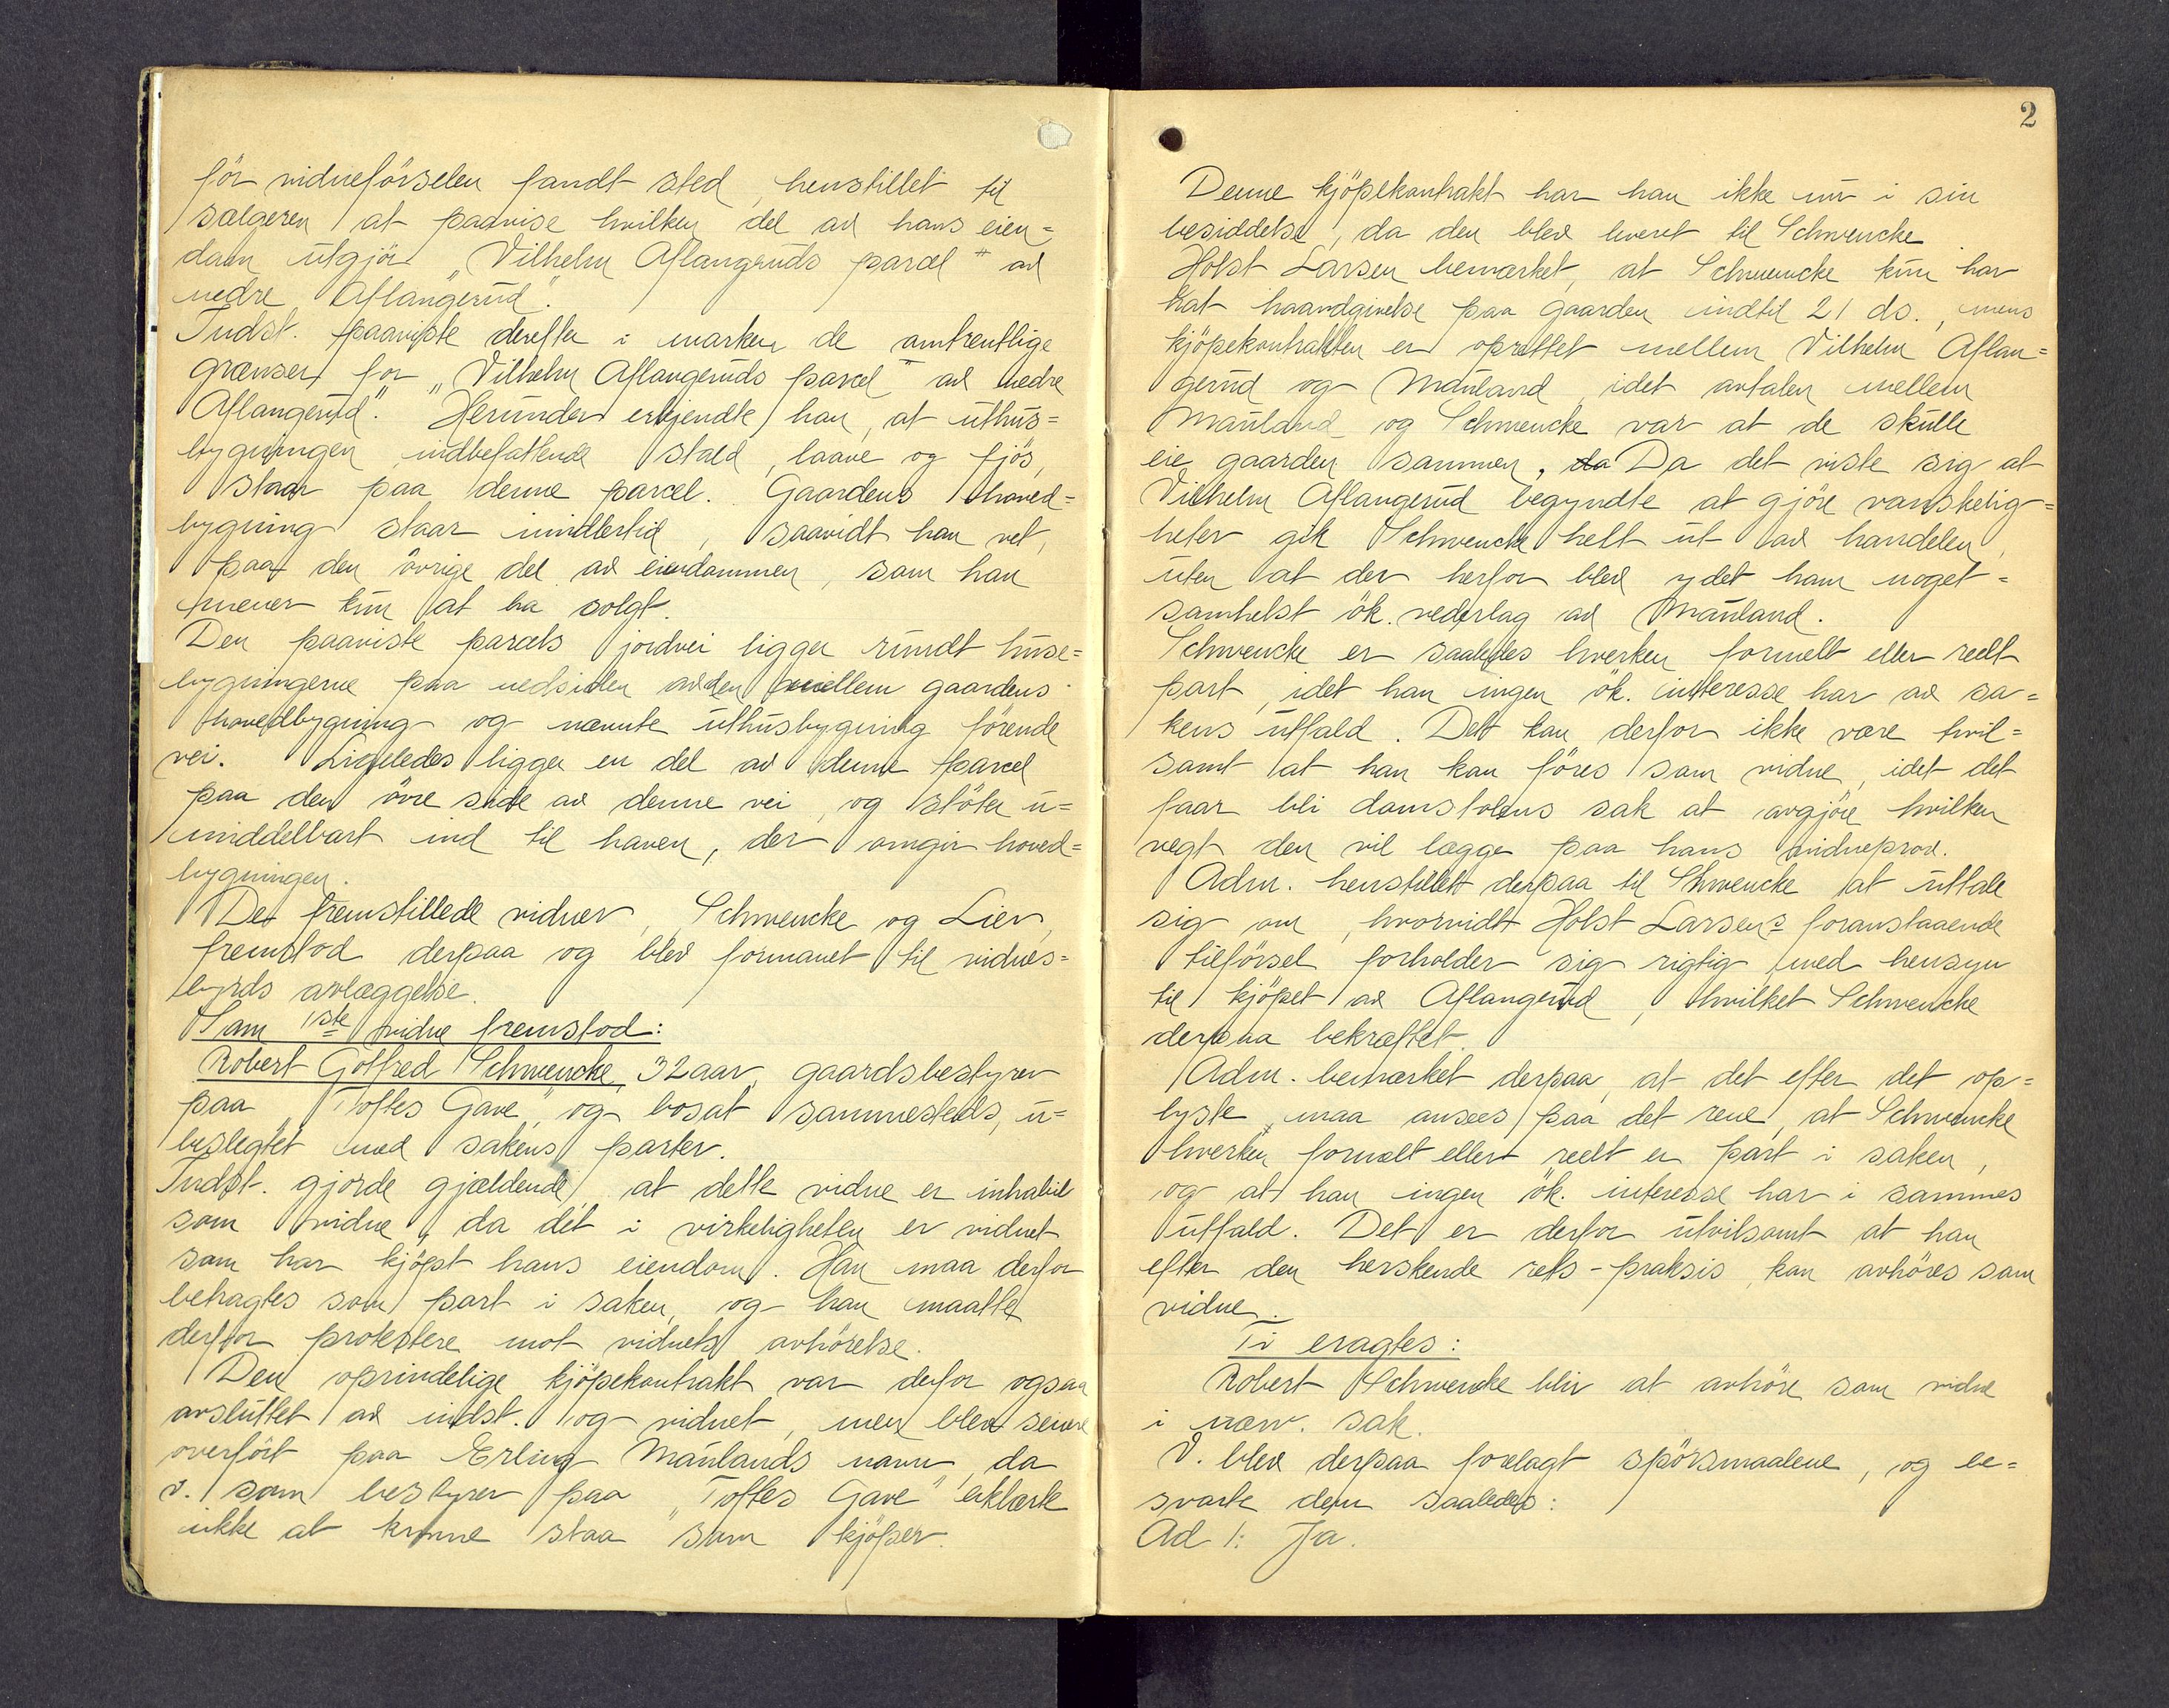 för vidneförselen fandt sted, henstillet til
sælgeren at paavise hvilken del av hans eien=
dom utgjör „Vilhelm Aflangeruds parcel" av
nedre Aflangerud".
Indst. paaviste derefter i marken de omtrentlige
grænser for „Vilhelm Aflangeruds parcel" av nedre
Aflangerud". Herunder erkjendte han, at uthus=
bygningen indbefattende stald, laave og fjös,
staar paa denne parcel. Gaardens hoved=
bygning staar imidlertid, saavidt han vet,
paa den övrige del av eiendommen, som han
mener kun at ha solgt.
Den paaviste parcels jordvei ligger rundt huse=
bygningerne paa nedsiden av den mellem gaardens
hovedbygning og nævnte uthusbygning förende
vei. Ligeledes ligger en del av denne parcel
paa den övre side av denne vei, og stöter u=
middelbart ind til haven, der omgir hoved=
bygningen.
De fremstillede vidner, Schwencke og Lier,
fremstod derpaa og blev formanet til vidnes=
byrds avlæggelse.
Som 1ste vidne fremstod:
Robert Gotfred Schwencke, 32 aar, gaardsbestyrer
paa „Toftes Gave", og bosat sammesteds, u=
beslegtet med sakens parter.
Indst. gjorde gjældende, at dette vidne er inhabil
som vidne, da det i virkeligheten er vidnet
som har kjöpt hans eiendom. Han maa derfor
betragtes som part i saken, og han maatte
derfor protestere mot vidnets avhörelse.
Den oprindelige kjöpekontrakt var derfor ogsaa
avsluttet av indst. og vidnet, men blev senere
overfört paa Erling Maulands navn, da
v. som bestyrer paa „Toftes Gave" erklærte
ikke at kunne staa som kjöper.
2
Denne kjöpekontrakt har han ikke nu i sin
besiddelse, da den blev levert til Schwencke.
Holst Larsen bemærket, at Schwencke kun har
hat haandgivelse paa gaarden indtil 21 ds., mens
kjöpekontrakten er oprettet mellem Vilhelm Aflan=
gerud og Mauland, idet avtalen mellem
Mauland og Schwencke var at de skulle
eie gaarden sammen. da Da det viste sig at
Vilhelm Aflangerud begyndte at gjöre vanskelig=
heter gik Schwencke helt ut av handelen,
uten at der herfor blev ydet ham noget=
somhelst ök. vederlag av Mauland.
Schwencke er saaledes hverken formelt eller reelt
part, idet han ingen ök. interesse har av sa=
kens utfald. Det kan derfor ikke være tvil=
somt at han kan föres som vidne, idet det
faar bli domstolens sak at avgjöre hvilken
vegt den vil lægge paa hans vidneprov.
Adm. henstillet derpaa til Schwencke at uttale
sig om, hvorvidt Holst Larsens foranstaaende
tilförsel forholder sig rigtig med hensyn
til kjöpet av Aflangerud, hvilket Schwencke
derpaa bekræftet.
Adm. bemærket derpaa, at det efter det op=
lyste maa ansees paa det rene, at Schwencke
hverken formelt eller reelt er part i saken,
og at han ingen ök. interesse har i sammes
utfald. Det er derfor utvilsomt at han
efter den herskende rets-praksis kan avhöres som
vidne.
Ti eragtes:
Robert Schwencke blir at avhöre som vidne
i nærv. sak.
V. blev derpaa forelagt spörsmaalene, og be=
svarte dem saaledes:
Ad 1: Ja.